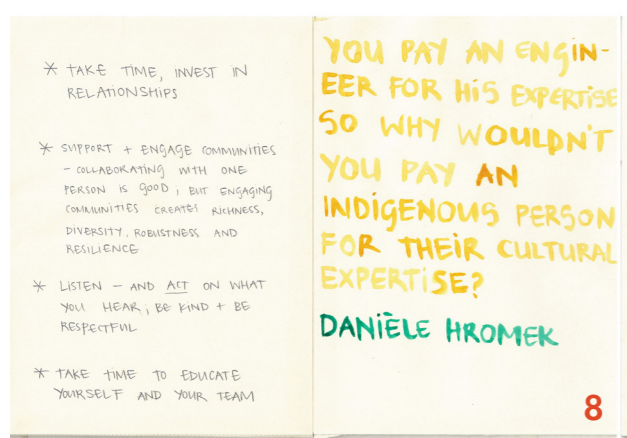 * TAKE TIME, INVEST IN
RELATIONSHIPS
* SUPPORT + ENGAGE COMMUNITIES
- COLLABORATING WITH ONE
PERSON IS GOOD, BUT ENGAGING
COMMUNITIES CREATES RICHNESS,
DIVERSITY, ROBUSTNESS AND
RESILIENCE
* LISTEN - AND ACT ON WHAT
YOU HEAR; BE KIND + BE
RESPECTFUL
* TAKE TIME TO EDUCATE
YOURSELF AND YOUR TEAM
YOU PAY AN ENGIN-
EER FOR HIS EXPERTISE
SO WHY WOULDN'T
YOU PAY AN
INDIGENOUS PERSON
FOR THEIR CULTURAL
EXPERTISE?
DANIÈLE HROMEK
8